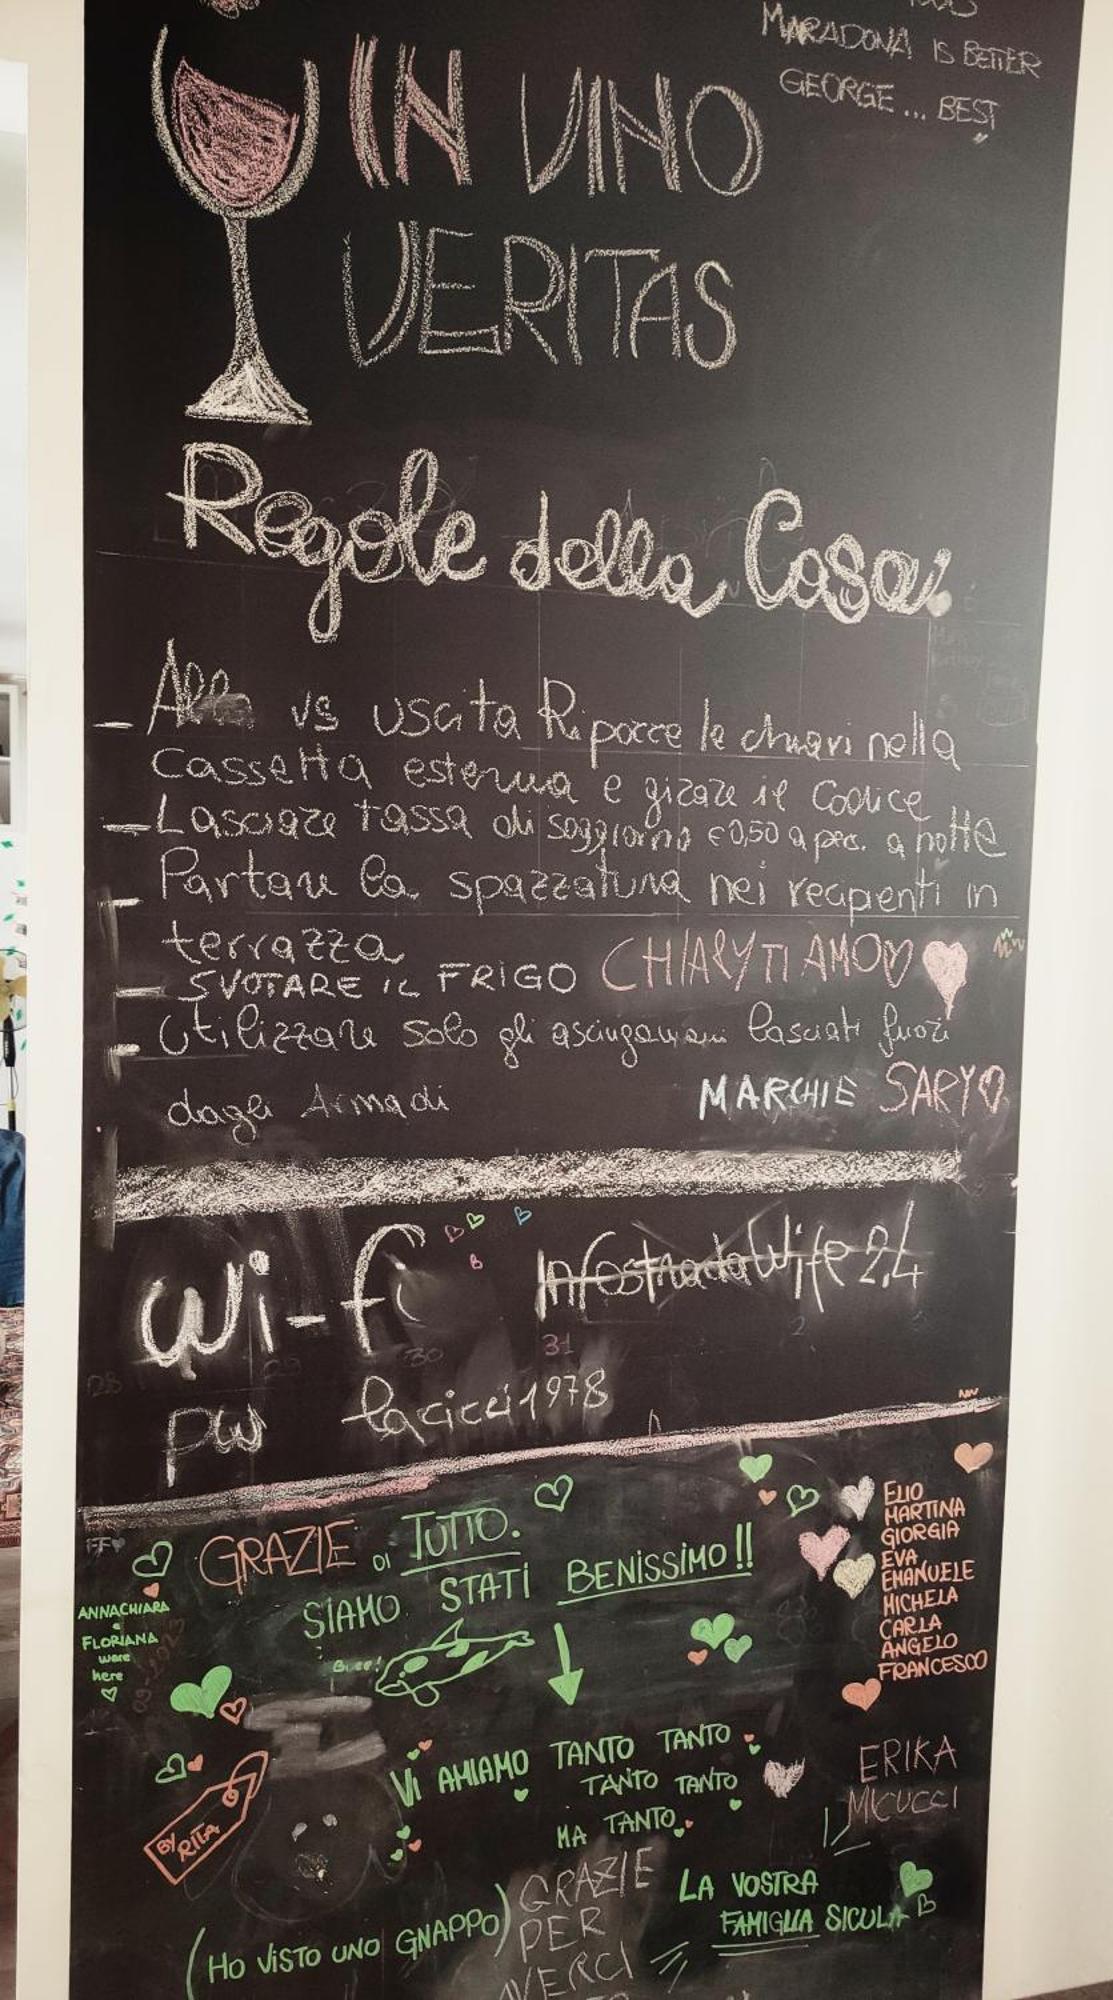 MARADONA IS BETTER
GEORGE ... BEST
IN VINO
VERITAS
Regole della Casa
- Alla vs uscita Riporre le chiavi nella
cassetta esterna e girare il codice
- Lasciare tassa di soggiorno €0,50 a pers. a notte
- Portare la spazzatura nei recipenti in
terrazza
- SVOTARE IL FRIGO
CHIARY TI AMO
- Utilizzare solo gli asciugamani lasciati fuori
dagli Armadi
MARCHIE SARY
Wi-fi InfostradaWife 2.4
28 29 30 31 2 3
pw lacicci1978
GRAZIE DI TUTTO.
SIAMO STATI BENISSIMO!!
ELIO
MARTINA
GIORGIA
EVA
EMANUELE
MICHELA
CARLA
ANGELO
FRANCESCO
FF
ANNACHIARA
e
FLORIANA
were
here
09-2023
VI AMIAMO TANTO TANTO
TANTO TANTO
MA TANTO
BY RITA
ERIKA
MICUCCI
LA VOSTRA
FAMIGLIA SICULA
(HO VISTO UNO GNAPPO)
GRAZIE
PER
AVERCI